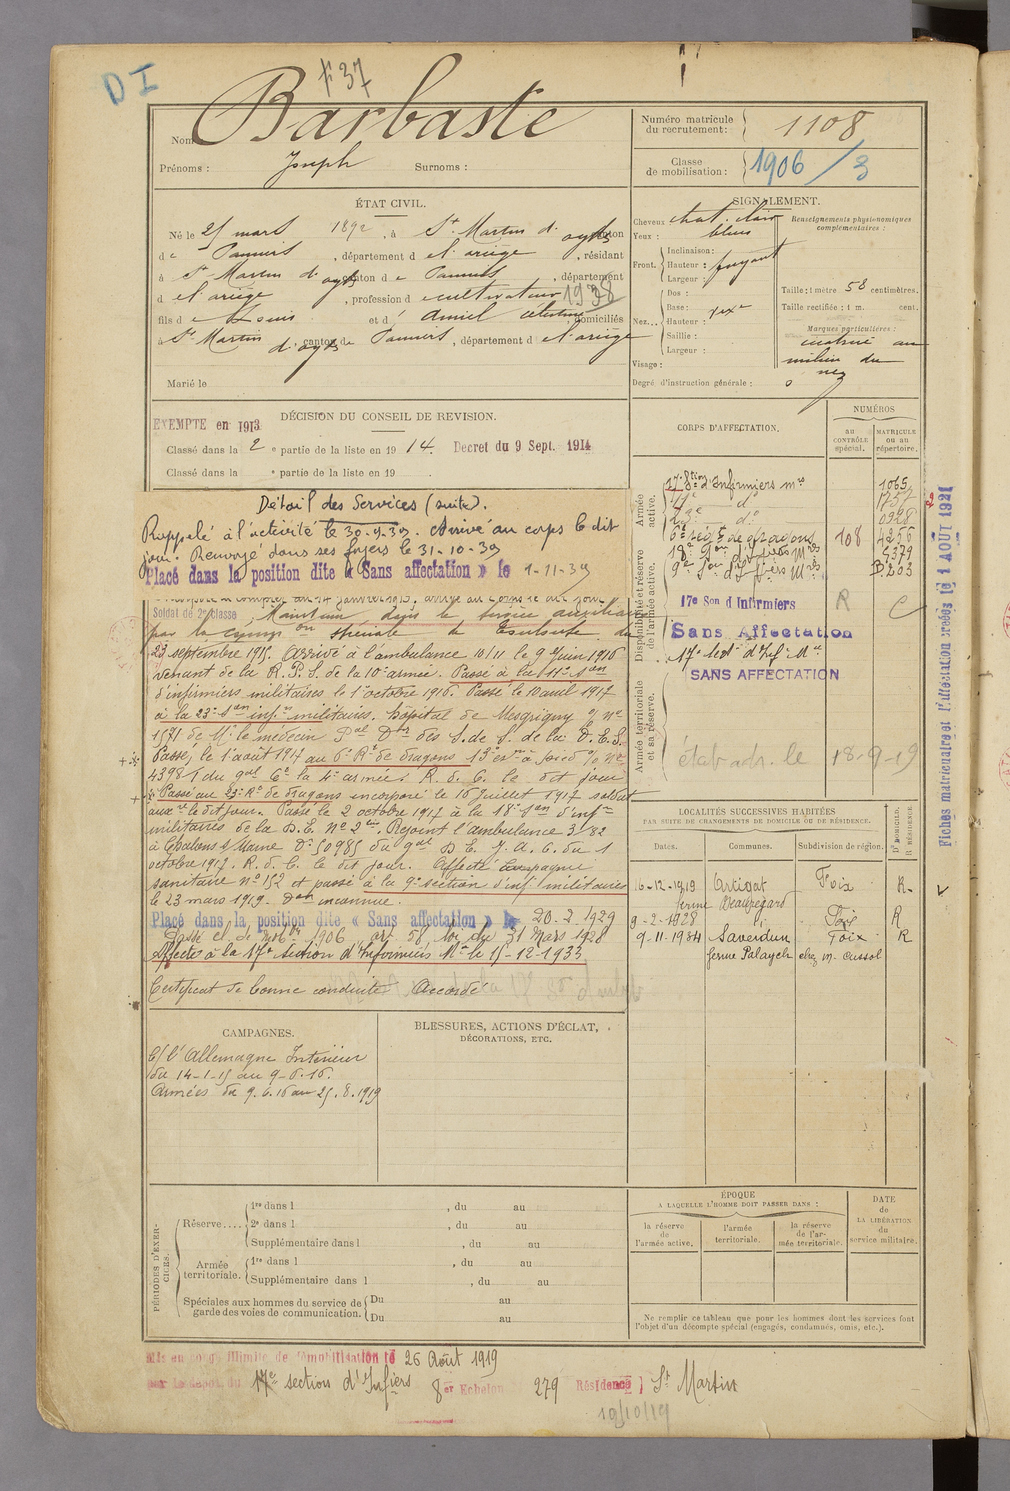 D I
F 37
Nom Barbaste
Prénoms : Joseph Surnoms :
Numéro matricule du recrutement : 1108
Classe de mobilisation : 1906 / 3
ÉTAT CIVIL.
Né le 25 mars 1892, à St Martin d'oydes canton
de Pamiers, département de l'ariège, résidant
à St Martin d'oydes canton de Pamiers, département
de l'ariège, profession de cultivateur 1938
fils de Louis et d' Amiel Célestine domiciliés
à St Martin d'oydes canton de Pamiers, département de l'ariège
Marié le
SIGNALEMENT.
Cheveux chat. clair
Yeux : bleus
Front. Inclinaison :
Hauteur : fuyant
Largeur :
Nez... Dos :
Base :
Hauteur :
Saillie :
Largeur :
Visage :
Degré d'instruction générale : 0
Renseignements physionomiques complémentaires :
Taille : 1 mètre 58 centimètres.
Taille rectifiée : 1 m. cent.
Marques particulières :
cicatrice au
milieu du
nez
DÉCISION DU CONSEIL DE REVISION.
EXEMPTE en 1913
Classé dans la 2e partie de la liste en 1914. Decret du 9 Sept. 1914
Classé dans la e partie de la liste en 19
Détail des Services (suite).
Rappelé à l'activité le 30-9-39. Arrivé au corps le dit
jour. Renvoyé dans ses foyers le 31-10-39
Placé dans la position dite « Sans affectation » le 1-11-39
Soldat de 2e classe Maintenu dans le service auxiliaire
par la commission spéciale de Toulouse du
23 septembre 1915. Arrivé à l'ambulance 10/11 le 9 Juin 1916
venant de la R.P.S. de la 10e armée. Passé à la 11e Son
d'infirmiers militaires le 1er octobre 1916. Passé le 10 avril 1917
à la 23e Son inf. militaires. hôpital de Mesgrigny
1581 de Mr le medecin des S. de S. de la D.E.S.
Passé, le 1er août 1917 au 6e Rt de dragons
4398 de la 4e armée R. d. C. le dit jour
Passé au 23e Rt de dragons incorporé le 16 juillet 1917 soldat
aux. le dit jour. Passé le 2 octobre 1917 à la 18e Son d'inf.
militaires de la D.E. No 2. Rejoint l'ambulance 3/82
à Chalons s/ Marne D. 50985 du D.E.J.A.C. du 1
octobre 1917. R. d. C. le dit jour. Affecté compagnie
sanitaire no 152 et passé à la 9e section d'inf. militaires
le 23 mars 1919. Don inconnue.
Placé dans la position dite « Sans affectation » le 20-2-1929
Passé cl. de mobon 1906 art 58 loi du 31 Mars 1928
Affecté à la 17e section d'Infirmiers Mre le 15-12-1933
Certificat de bonne conduite Accordé
CORPS D'AFFECTATION.
NUMÉROS
au CONTRÔLE spécial.
MATRICULE ou au répertoire.
Armée active.
17e Son d'Infirmiers mres 1065
11e do 1757
23e do 0928
6e régt de dragons 108 4256
18e Son d'Infiers Mres 5379
9e Son d'Infiers Mres B.203
Disponibilité et réserve de l'armée active.
17e Son d'Infirmiers R C
Sans Affectation
17e Sect. d'Inf. Mre
SANS AFFECTATION
Armée territoriale et sa réserve.
établ. adr. le 18-9-19
Fiches matriculaire et d'affectation créées le 1 AOUT 1921
LOCALITÉS SUCCESSIVES HABITÉES
PAR SUITE DE CHANGEMENTS DE DOMICILE OU DE RÉSIDENCE.
Dates. Communes. Subdivision de région. D. DOMICILE. R. RÉSIDENCE.
16-12-1919 Artigat Foix R.
ferme Beauregard
9-2-1928 Foix R
9-11-1934 Saverdun Foix R
ferme Palaych chez M. Cussol
CAMPAGNES.
C/ l'Allemagne Intérieur
du 14-1-15 au 9-6-16.
Armées du 9.6.16 au 25.8.1919
BLESSURES, ACTIONS D'ÉCLAT,
DÉCORATIONS, ETC.
PÉRIODES D'EXERCICES.
Réserve.... 1re dans l , du au
2e dans l , du au
Supplémentaire dans l , du au
Armée territoriale. 1re dans l , du au
Supplémentaire dans l , du au
Spéciales aux hommes du service de garde des voies de communication. Du au
Du au
ÉPOQUE
A LAQUELLE L'HOMME DOIT PASSER DANS :
la réserve de l'armée active.
l'armée territoriale.
la réserve de l'armée territoriale.
DATE de LA LIBÉRATION du service militaire.
Ne remplir ce tableau que pour les hommes dont les services font
l'objet d'un décompte spécial (engagés, condamnés, omis, etc.).
Mis en congé illimité de démobilisation le 26 Août 1919
par le dépôt du 17e section d'Infiers 8er Echelon 279 Résidence St Martin
19/10/19